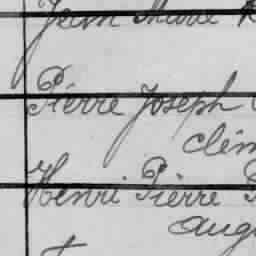 Jean
Pierre Joseph
Clém
Henri Pierre
Aug